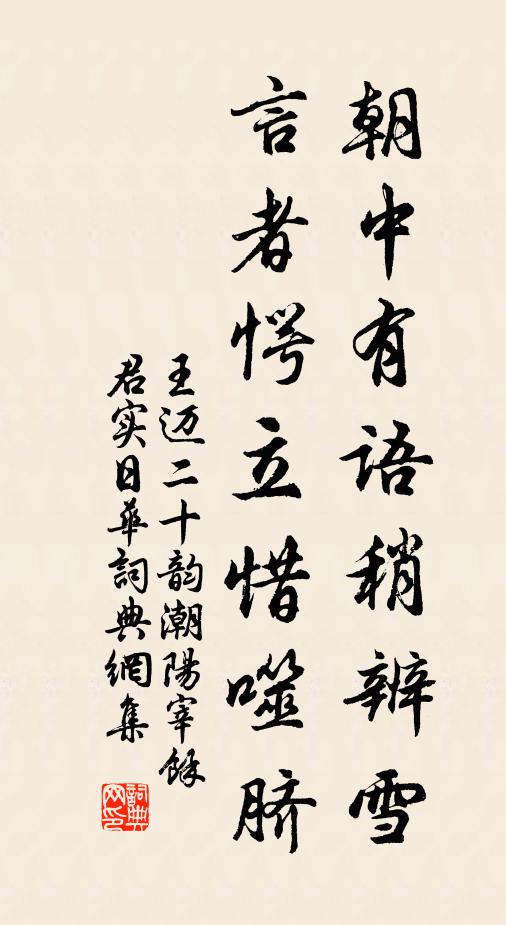 朝中有语稍辨雪
言者愕立惜噬脐
王迈二十韵潮陽宰餘
君实日華詞典網集
詞典网印